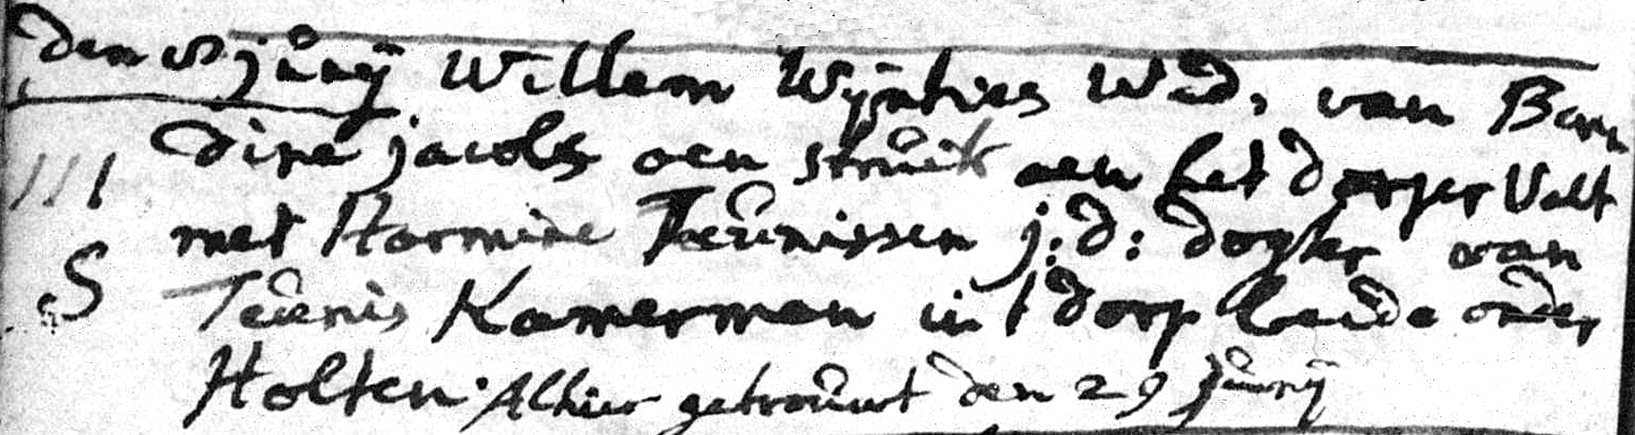 den 8 junij Willem Wijnties Wed, van Baren
dine jacobs aen struik aen het dorper Velt
met Harmine Teunissen j: d: dogter van
Teunis Kamerman in 't dorp beide onder
Holten. Alhier getrouwt den 29 junij
///
S